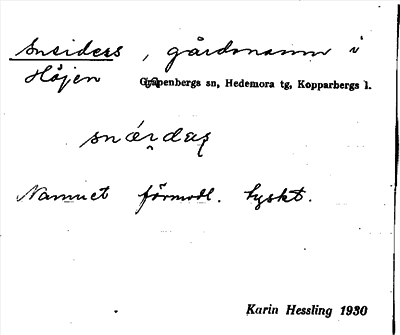 Sneiders, gårdsnamn i
Höjen Garpenbergs sn, Hedemora tg, Kopparbergs l.
snéi̯das̨
Namnet förmodl. tyskt.
Karin Hessling 1930